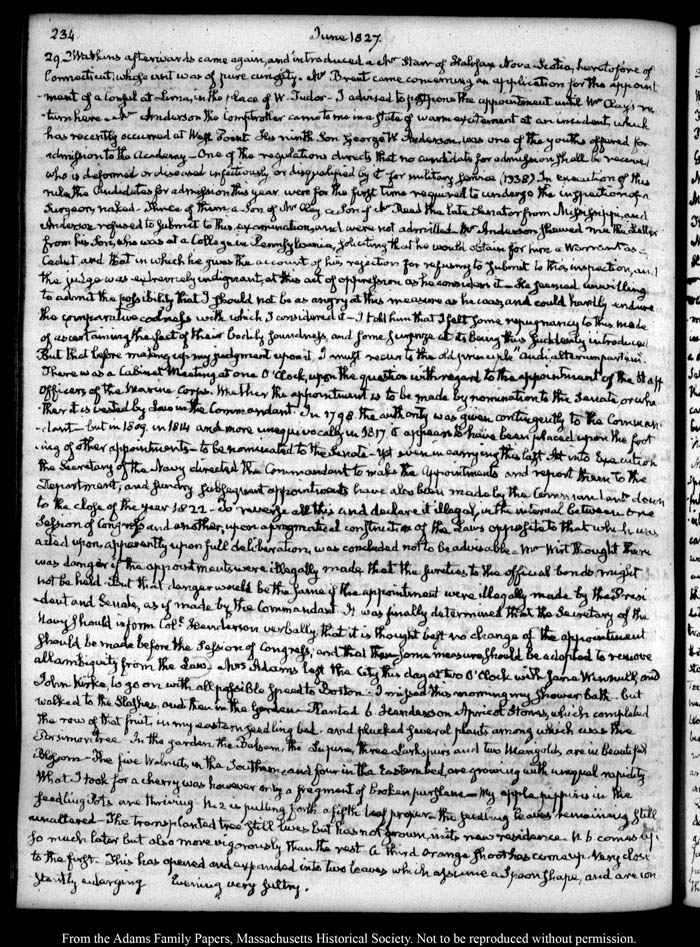 234
June 1827.
29. I Watkins afterwards came again, and introduced a Mr Starr of Halifax Nova-Scotia, heretofore of
Connecticut; whose visit was of pure curiosity. Mr Brent came concerning an application for the appoint
-ment of a Consul at Lima, in the place of W. Tudor - I advised to postpone the appointment until Mr Clay's re
turn here - Mr Anderson the Comptroller came to me in a state of warm excitement at an incident which
has recently occurred at West Point. His ninth Son George W. Anderson, was one of the youths offered for
admission to the Academy - One of the regulations directs that no candidate for admission shall be received
who is deformed or diseased infectiously, or disqualified by it for military service (1338) In execution of this
rule, the Candidates for admission this year were for the first time required to undergo the inspection of a
Surgeon, naked - Three of them, a Son of Mr Clay, a Son of Mr Reed the late Senator from Mississippi, and
Anderson refused to submit to this examination, and were not admitted. Mr Anderson shewed me the Letter
from his Son, who was at a College in Pennsylvania, soliciting that he would obtain for him a Warrant as
Cadet, and that in which he gives the account of his rejection for refusing to submit to this inspection, and
the judge was extremely indignant, at this act of oppression as he considers it - He seemed unwilling
to admit the possibility that I should not be as angry at this measure as he was, and could hardly endure
the comparative coolness with which I considered it - I told him that I felt some repugnancy to this mode
of ascertaining the fact of their bodily soundness, and some surprize at its being thus suddenly introduced
But that before making up my judgment upon it, I must recur to the old principle "Audi alteram partem."
There was a Cabinet Meeting at one O'Clock, upon the question with regard to the appointment of the Staff
Officers of the Marine Corps. Whether the appointment is to be made by nomination to the Senate or whe
-ther it is vested by Law in the Commandant. In 1798 the authority was given contingently to the Comman
-dant - but in 1809. in 1814 and more unequivocally in 1817. it appears to have been placed upon the foot
-ing of other appointments - to be nominated to the Senate - Yet even in carrying this last Act into Execution
the Secretary of the Navy directed the Commandant to make the Appointments and report them to the
Department; and sundry subsequent appointments have also been made by the Commandant down
to the close of the year 1822 - To reverse all this and declare it illegal, in the interval between one
Session of Congress and another, upon a pragmatical construction of the Laws opposite to that which was
acted upon, apparently upon full deliberation, was concluded not to be adviseable - Mr Wirt thought there
was danger if the appointments were illegally made that the sureties to the official bonds might
not be held - But that danger would be the same if the appointment were illegally made by the Presi
-dent and Senate, as if made by the Commandant. It was finally determined that the Secretary of the
Navy should inform Colonel Henderson verbally that it is thought best no change of the appointment
should be made before the Session of Congress, and that then some measure should be adopted to remove
all ambiguity from the Law. Mrs Adams left the City this day at two O'Clock with Jane Winnull, and
John Kirke, to go on with all possible speed to Boston - I missed this morning my shower bath - but
walked to the Slashes, and then in the Garden - Planted 6. Henderson Apricot Stones, which completed
the row of that fruit, in my eastern seedling bed - and plucked several plants among which was the
Persimon tree - In the garden, the Balsam, the Lupine, three Larkspurs and two Marigolds are in beautiful
Bloom - The five Walnuts, in the Southern, and four in the Eastern bed, are growing with unequal rapidity
What I took for a cherry was however only a fragment of broken purslane - My apple pippins in the
seedling Pots are thriving - N. 2 is putting forth a fifth leaf proper - the seedling leaves remaining still
unaltered - The transplanted tree still lives but has not grown, in its new residence - N. 6 comes up
so much later but also more vigorously than the rest - A third Orange shoot has come up - Very close
to the first - This has opened and expanded into two leaves which assume a Spoon shape, and are con
stantly enlarging Evening very sultry.
From the Adams Family Papers, Massachusetts Historical Society. Not to be reproduced without permission.